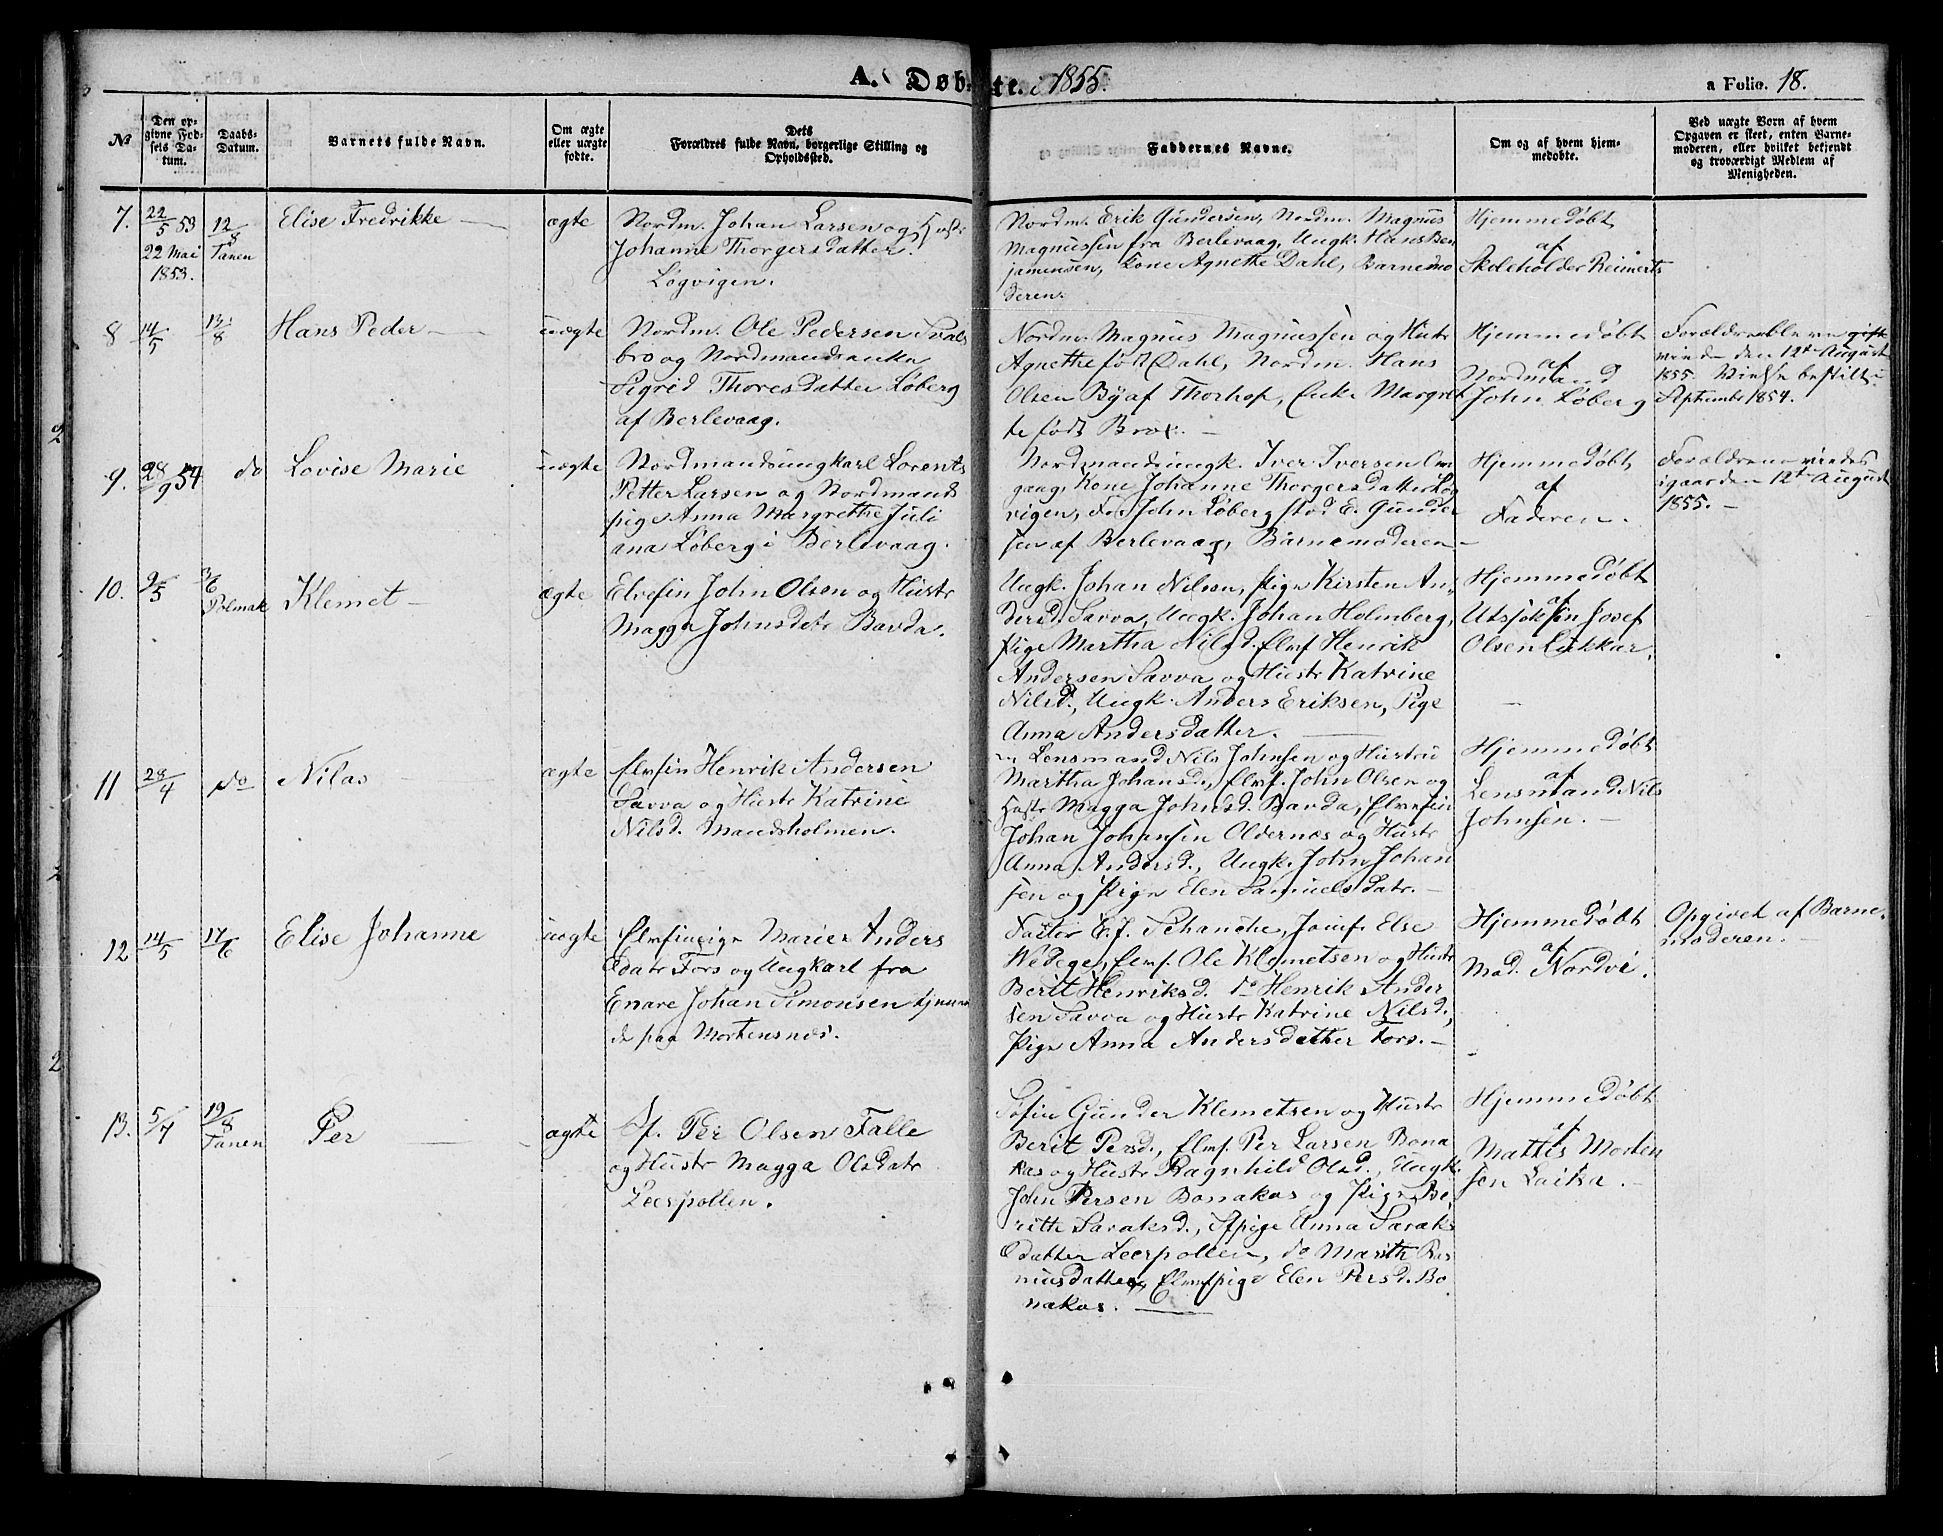 A. Døbte. 1855.
a Folio. 18.
№
Den op-
givne Fød-
sels Da-
tum.
Daabs-
Datum.
Barnets fulde Navn.
Om ægte
eller uægte
fødte.
Dets
Forældres fulde Navn, borgerlige Stilling og
Opholdssted.
Faddernes Navne.
Om og af hvem hjem-
medøbte.
Ved uægte Børn af hvem
Opgaven er skeet, enten Barne-
moderen, eller hvilket bekjendt
og troværdigt Medlem af
Menigheden.
7.
22/5 53
22 Mai
1853.
12/8
Tanen
Elise Fredrikke
ægte
Nordm. Johan Larsen og Hustr
Johanne Thorgersdatter.
Løgvigen.
Nordm. Erik Gundersen, Nordm. Magnus
Magnussen fra Berlevaag, Ungk. Hans Ben
jamensen, Kone Agnethe Dahl, Barnemo
deren.
Hjemmedøbt
af
Skoleholder Reimerts
8
14/5
13/8
Hans Peder
uægte
Nordm. Ole Pedersen Svals
bro og Nordmandsenke
Sigrid Thoresdatter Løberg
af Berlevaag.
Nordm. Magnus Magnussen og Hustr
Agnethe født Dahl, Nordm. Hans
Olsen By af Thorhop, Enke Margret
te født Brox.
Hjemmedøbt
af
Nordmand
John Løberg
Forældrene bleve gift
viede den 12te August
1855. Vielse bestilt i
September 1854.
9.
28/9 54
do
Lovise Marie
uægte
Nordmandsungkarl Lorents
Petter Larsen og Nordmands
pige Anna Margrethe Juli
ana Løberg i Berlevaag.
Nordmandsungk. Iver Iversen
gaag, Kone Johanne Thorgersdatter Løg
vigen, For John Løberg stod E. Gunder
sen af Berlevaag, Barnemoderen
Hjemmedøbt
af
Faderen.
Forældrene viedes
igaar den 12te August
1855.
10.
9/5
3/6
Polmak
Klemet
ægte
Elvefin John Olsen og Hustr
Magga Johnsdatr Bavda.
Ungk. Johan Nilsen, Pige Kirsten An-
dersd. Savva, Ungk. Johan Holmberg,
Pige Martha Nilsd. Elvf Henrik
Andersen Savva og Hustr Katrine
Nilsd., Ungk. Anders Eriksen, Pige
Anna Andersdatter.
Hjemmedøbt
af
Utsjokfin Josef
Olsen Lukkar.
11
28/4
do
Nilas
ægte
Elvefin Henrik Andersen
Savva og Hustr Katrine
Nilsd. Mandsholmen.
Lensmand Nils Johnsen og Hustru
Martha Johansd., Elvf. John Olsen og
Hustr Magga Johnsd. Bavda, Elvefin
Johan Johansen Oldernæs og Hustr
Anna Andersd., Ungk. John Johan
sen og Pige Elen Samuelsdatr.
Hjemmedøbt
af
Lensmand Nils
Johnsen.
12
14/5
17/6
Elise Johanne
uægte
Elvefinpige Marie Anders
datr Fors og Ungkarl fra
Enare Johan Simonsen tjenen
de paa Mortensnæs.
Factor E. J. Schanche, Jomf. Else
Wedege, Elvf. Ole Klemetsen og Hustr
Berit Henriksd. do Henrik Ander
sen Savva og Hustr Katrine Nilsd,
Pige Anna Andersdatter Fors.
Hjemmedøbt
af
Mad. Nordvi.
Opgivet af Barne-
moderen.
13.
5/4
19/8
Tanen
Per
ægte
Sf. Per Olsen Falle
og Hustr Magga Olsdatr
Leerpollen.
Søfin Gunder Klemetsen og Hustr
Berit Persd., Elvf. Per Larsen Bona
kas og Hustr Ragnhild Olsd., Ungk.
John Persen Bonakas og Pige Be
rith Saraksd., Sfpige Anna Saraks
datter Leerpollen, do Marith Ras
musdatter, Elvefpige Elen Persd. Bo
nakas.
Hjemmedøbt
af
Mattis Morten
sen Laika.